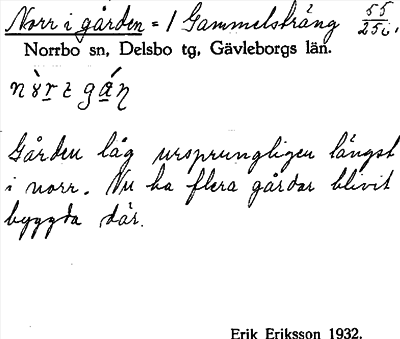 Norr i gården = 1 Gammelsträng 55/25i.
Norrbo sn, Delsbo tg, Gävleborgs län.
Gården låg ursprungligen längst
i norr. Nu ha flera gårdar blivit
byggda där.
Erik Eriksson 1932.